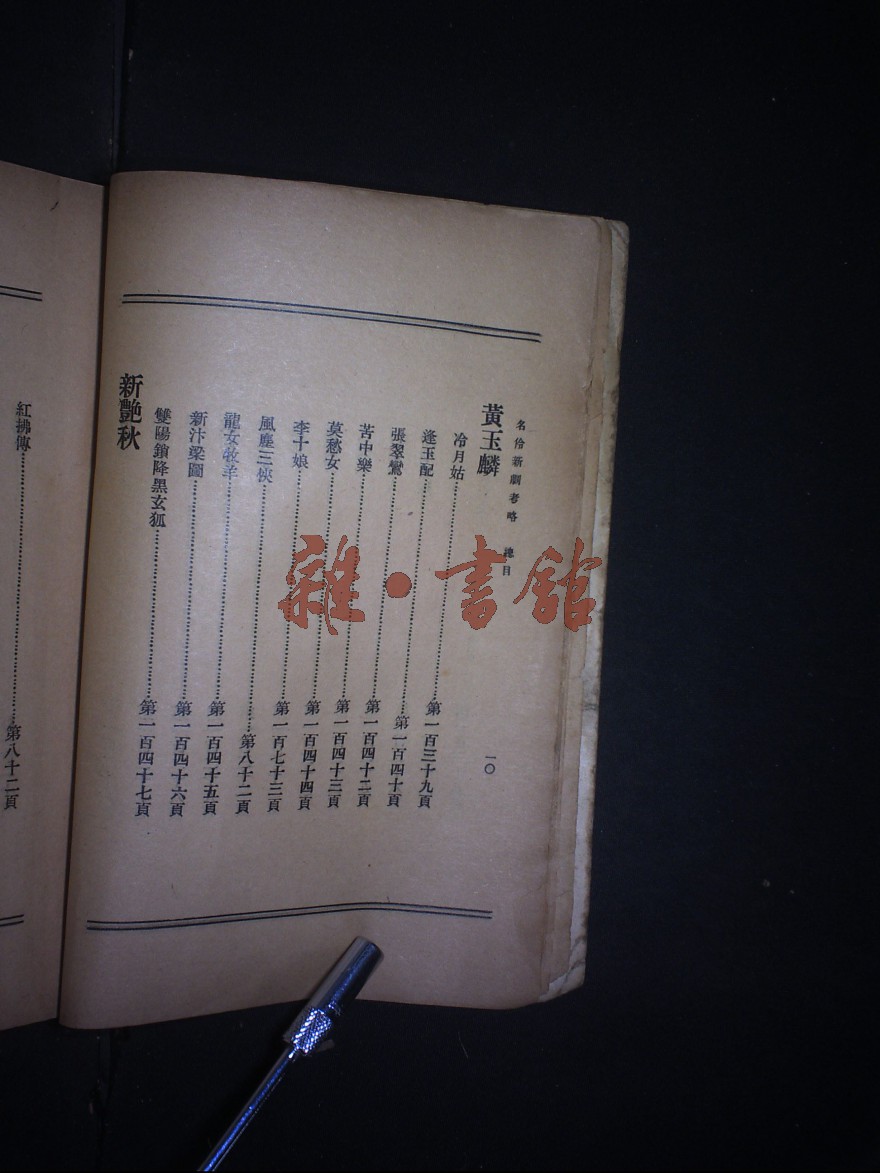 名伶新劇考略 總目 一〇
黃玉麟
冷月姑……第一百三十九頁
逢玉配……第一百四十頁
張翠鸞……第一百四十二頁
苦中樂……第一百四十三頁
莫愁女……第一百四十四頁
李十娘……第一百七十三頁
風塵三俠……第八十二頁
龍女牧羊……第一百四十五頁
新汴梁圖……第一百四十六頁
雙陽鎖降黑玄狐……第一百四十七頁
新艷秋
紅拂傳……第八十二頁
雜·書館